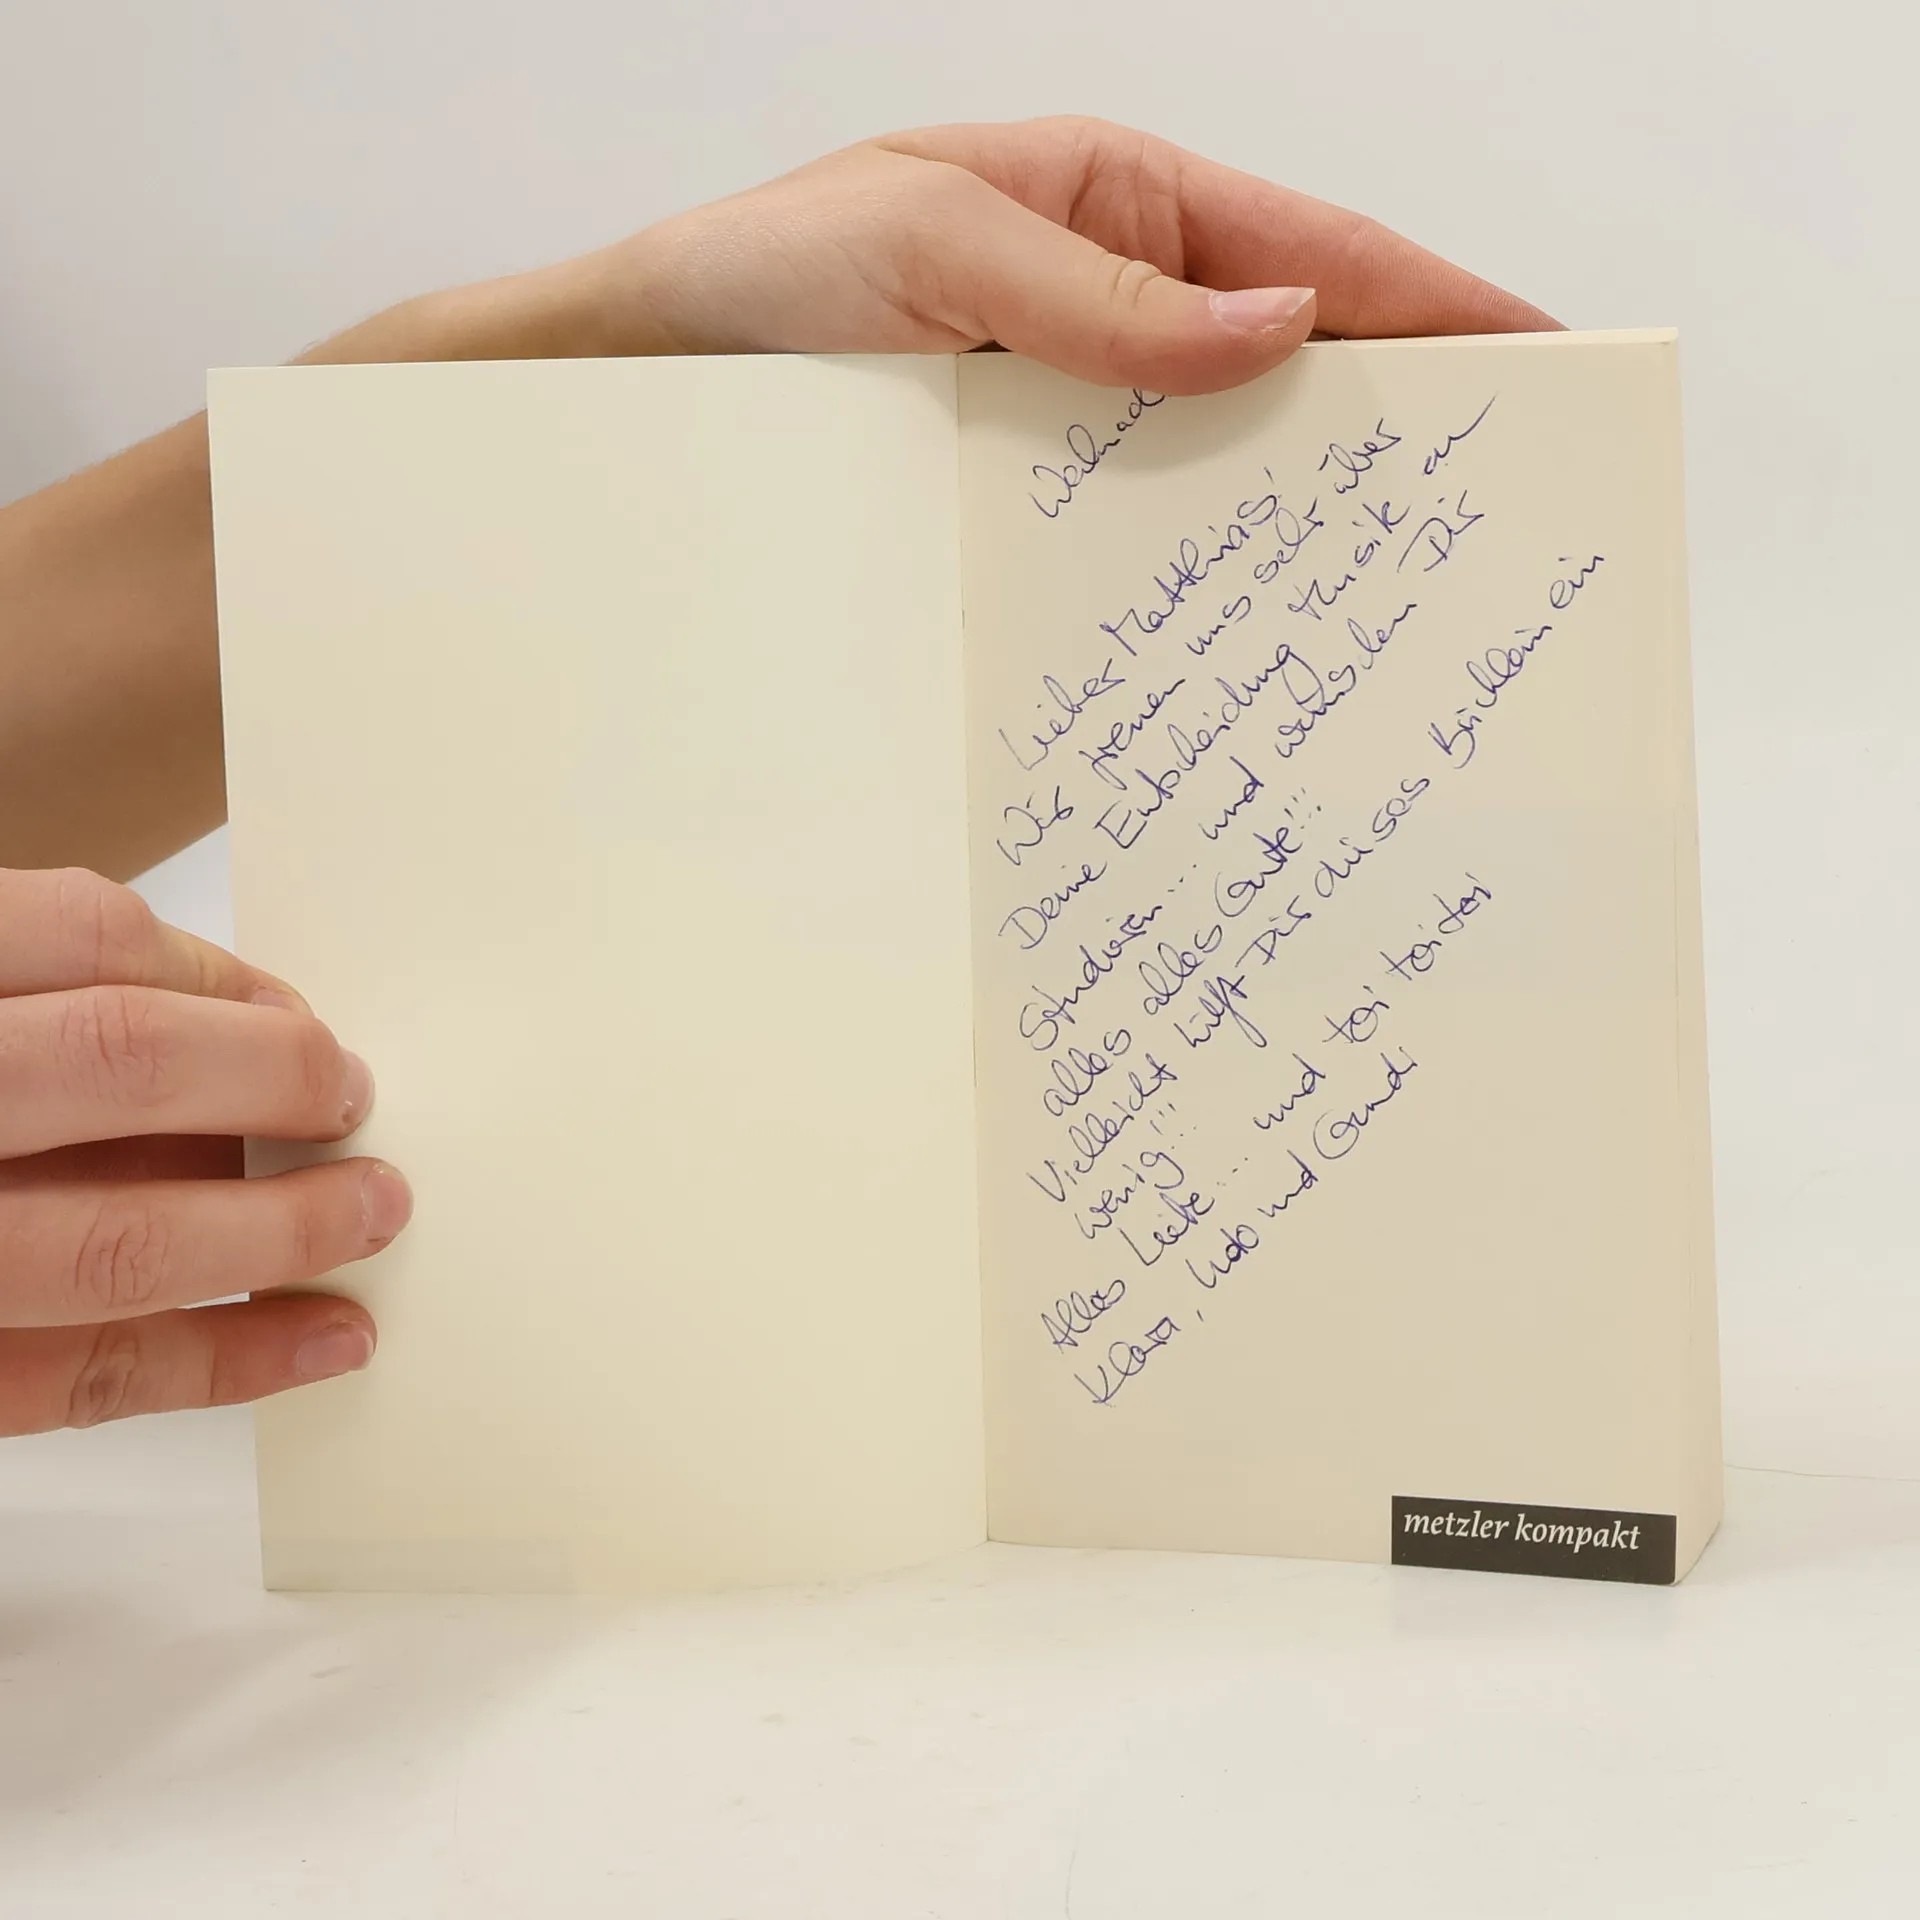 Weihnach
Lieber Matthias!
Wir freuen uns sehr über
Deine Entscheidung Musik zu
Studieren... und wünschen Dir
alles alles Gute!!!
Vielleicht hilft Dir dieses Büchlein ein
wenig!!!
Alles Liebe... und toi toi toi
Klara, Udo und Gundi
metzler kompakt